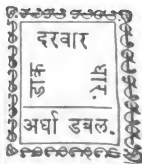 दरबार
डाक
धार.
अर्धा डबल.